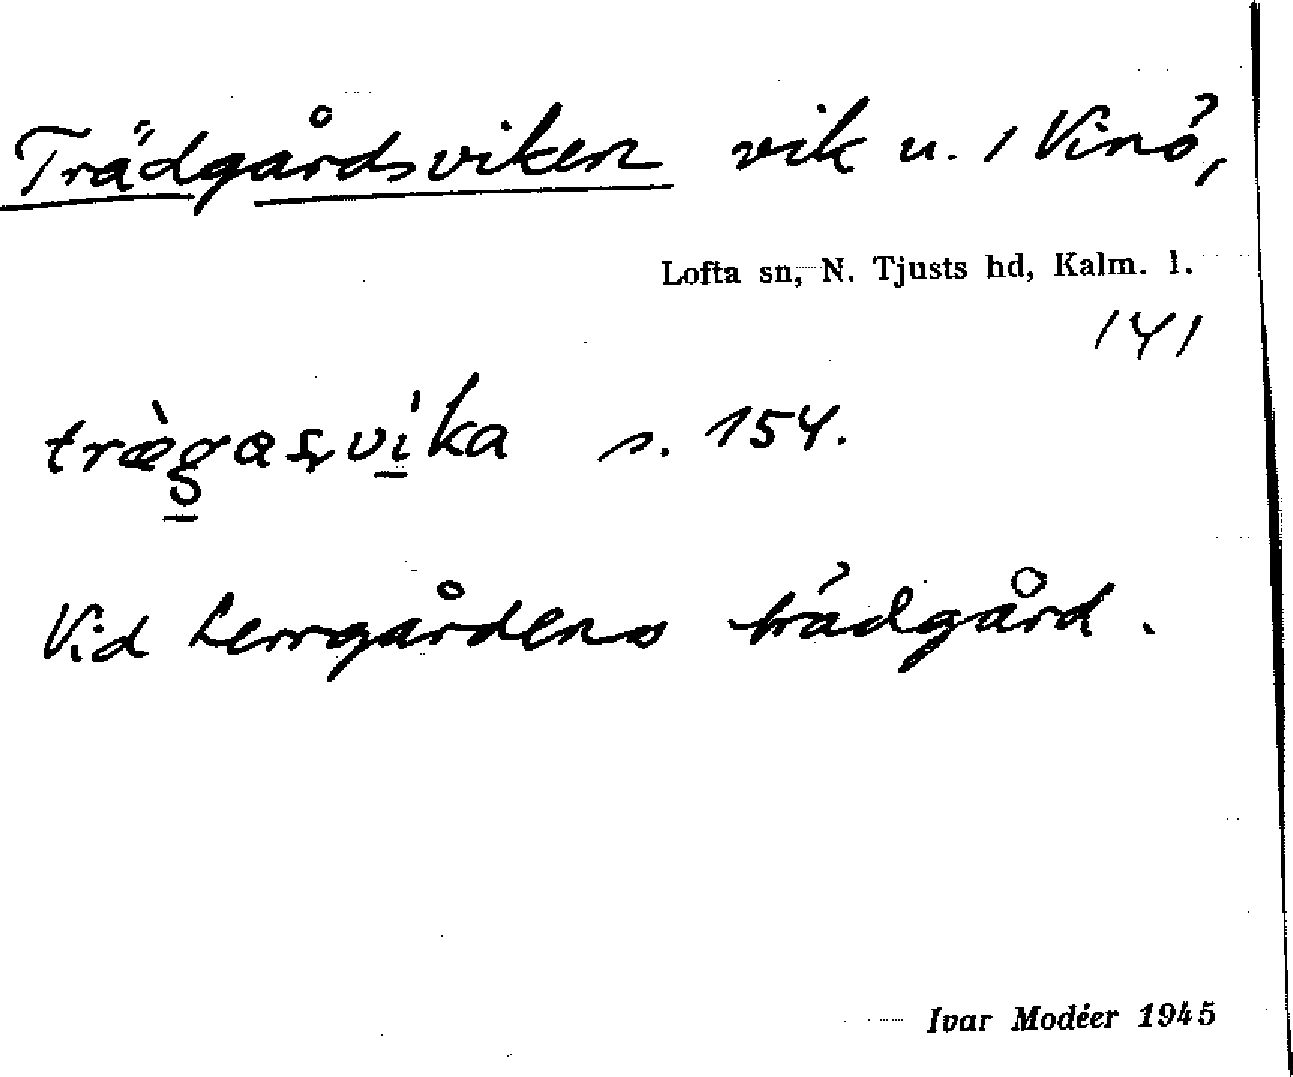 Trädgårdsviken vik u. 1 Vinö,
Lofta sn, N. Tjusts hd, Kalm. l.
141
s. 154.
Vid herrgårdens trädgård.
Ivar Modéer 1945